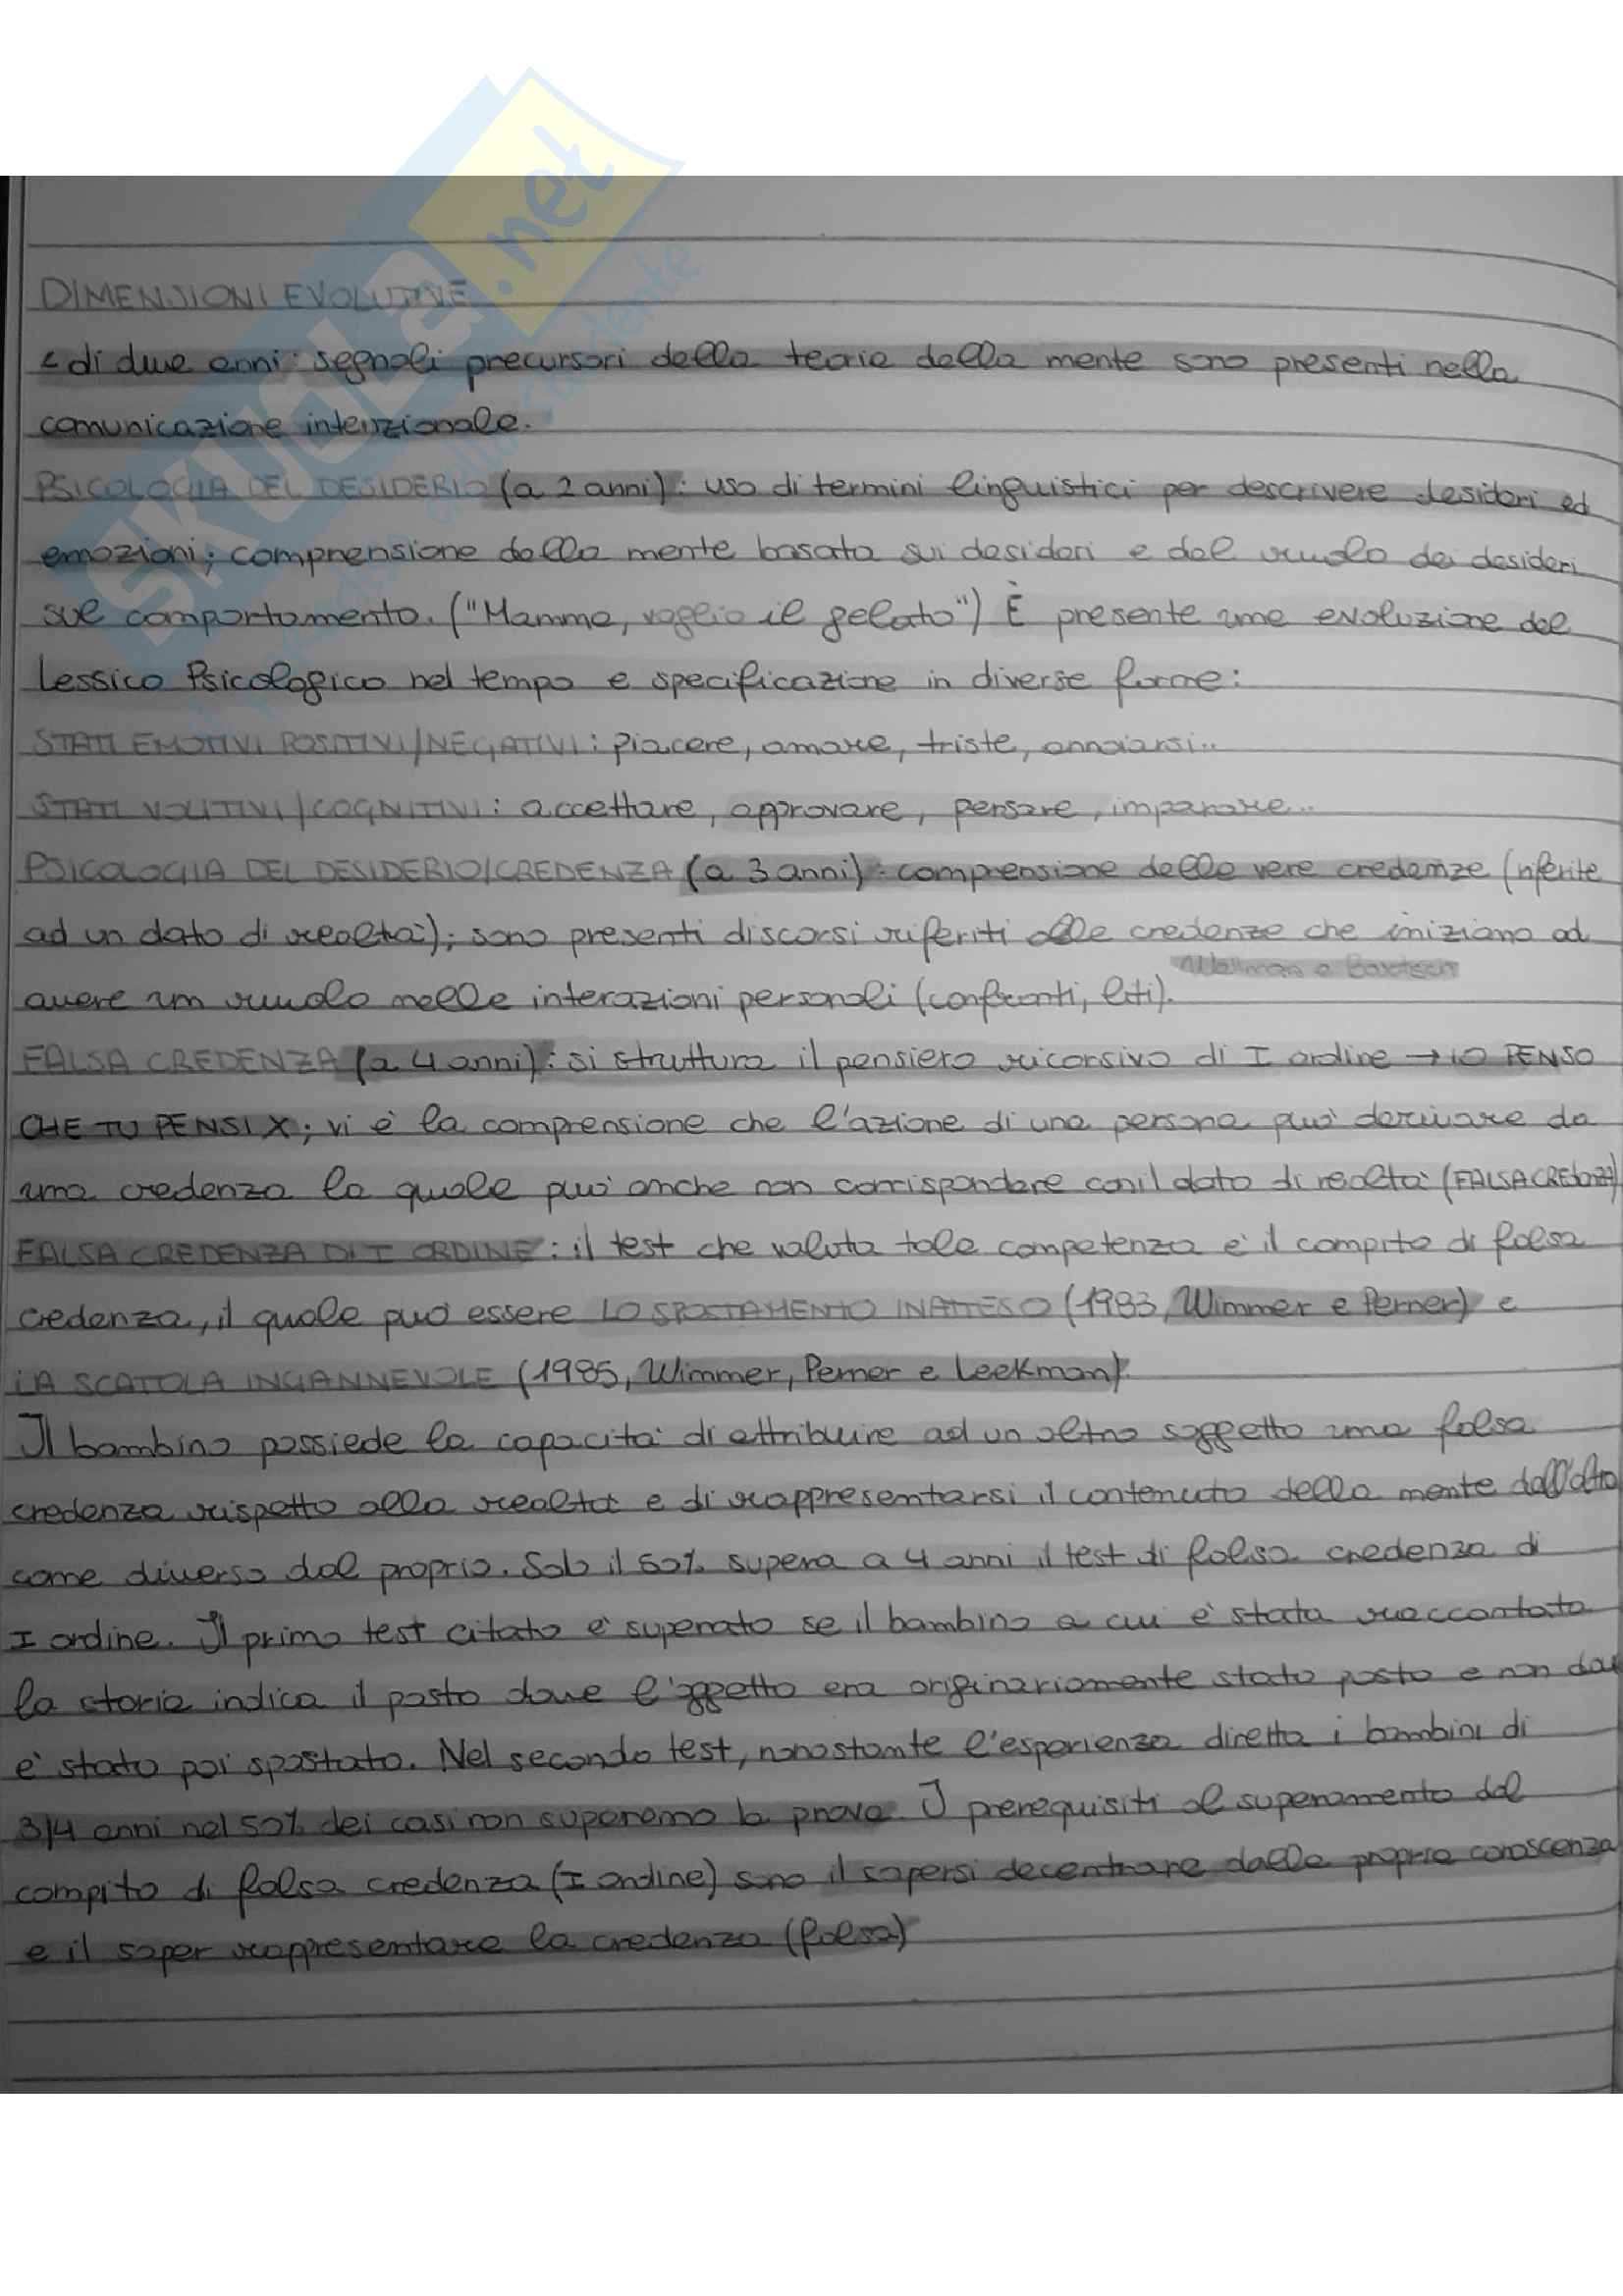 SKUOLA.net
DIMENSIONI EVOLUTIVE
< di due anni: segnali precursori della teoria della mente sono presenti nella
comunicazione intenzionale.
PSICOLOGIA DEL DESIDERIO (a 2 anni): uso di termini linguistici per descrivere desideri ed
emozioni; comprensione della mente basata sui desideri e del ruolo dei desideri
sul comportamento. ("Mamma, voglio il gelato") È presente una evoluzione del
Lessico Psicologico nel tempo e specificazione in diverse forme:
STATI EMOTIVI POSITIVI/NEGATIVI: piacere, amare, triste, annoiarsi..
STATI VOLITIVI/COGNITIVI: accettare, approvare, pensare, imparare..
PSICOLOGIA DEL DESIDERIO/CREDENZA (a 3 anni): comprensione delle vere credenze (riferite
ad un dato di realtà); sono presenti discorsi riferiti alle credenze che iniziano ad
Wellman e Bartsch
avere un ruolo nelle interazioni personali (confronti, liti).
FALSA CREDENZA (a 4 anni): si struttura il pensiero ricorsivo di I ordine → IO PENSO
CHE TU PENSI X; vi è la comprensione che l'azione di una persona può derivare da
una credenza la quale può anche non corrispondere con il dato di realtà (FALSA CREDENZA)
FALSA CREDENZA DI I ORDINE: il test che valuta tale competenza è il compito di falsa
credenza, il quale può essere LO SPOSTAMENTO INATTESO (1983, Wimmer e Perner) e
LA SCATOLA INGANNEVOLE (1985, Wimmer, Perner e Leekman).
Il bambino possiede la capacità di attribuire ad un altro soggetto una falsa
credenza rispetto alla realtà e di rappresentarsi il contenuto della mente dell'altro
come diverso dal proprio. Solo il 50% supera a 4 anni il test di falsa credenza di
I ordine. Il primo test citato è superato se il bambino a cui è stata raccontata
la storia indica il posto dove l'oggetto era originariamente stato posto e non dove
è stato poi spostato. Nel secondo test, nonostante l'esperienza diretta i bambini di
3/4 anni nel 50% dei casi non superano la prova. I prerequisiti al superamento del
compito di falsa credenza (I ordine) sono il sapersi decentrare dalla propria conoscenza
e il saper rappresentare la credenza (falsa)